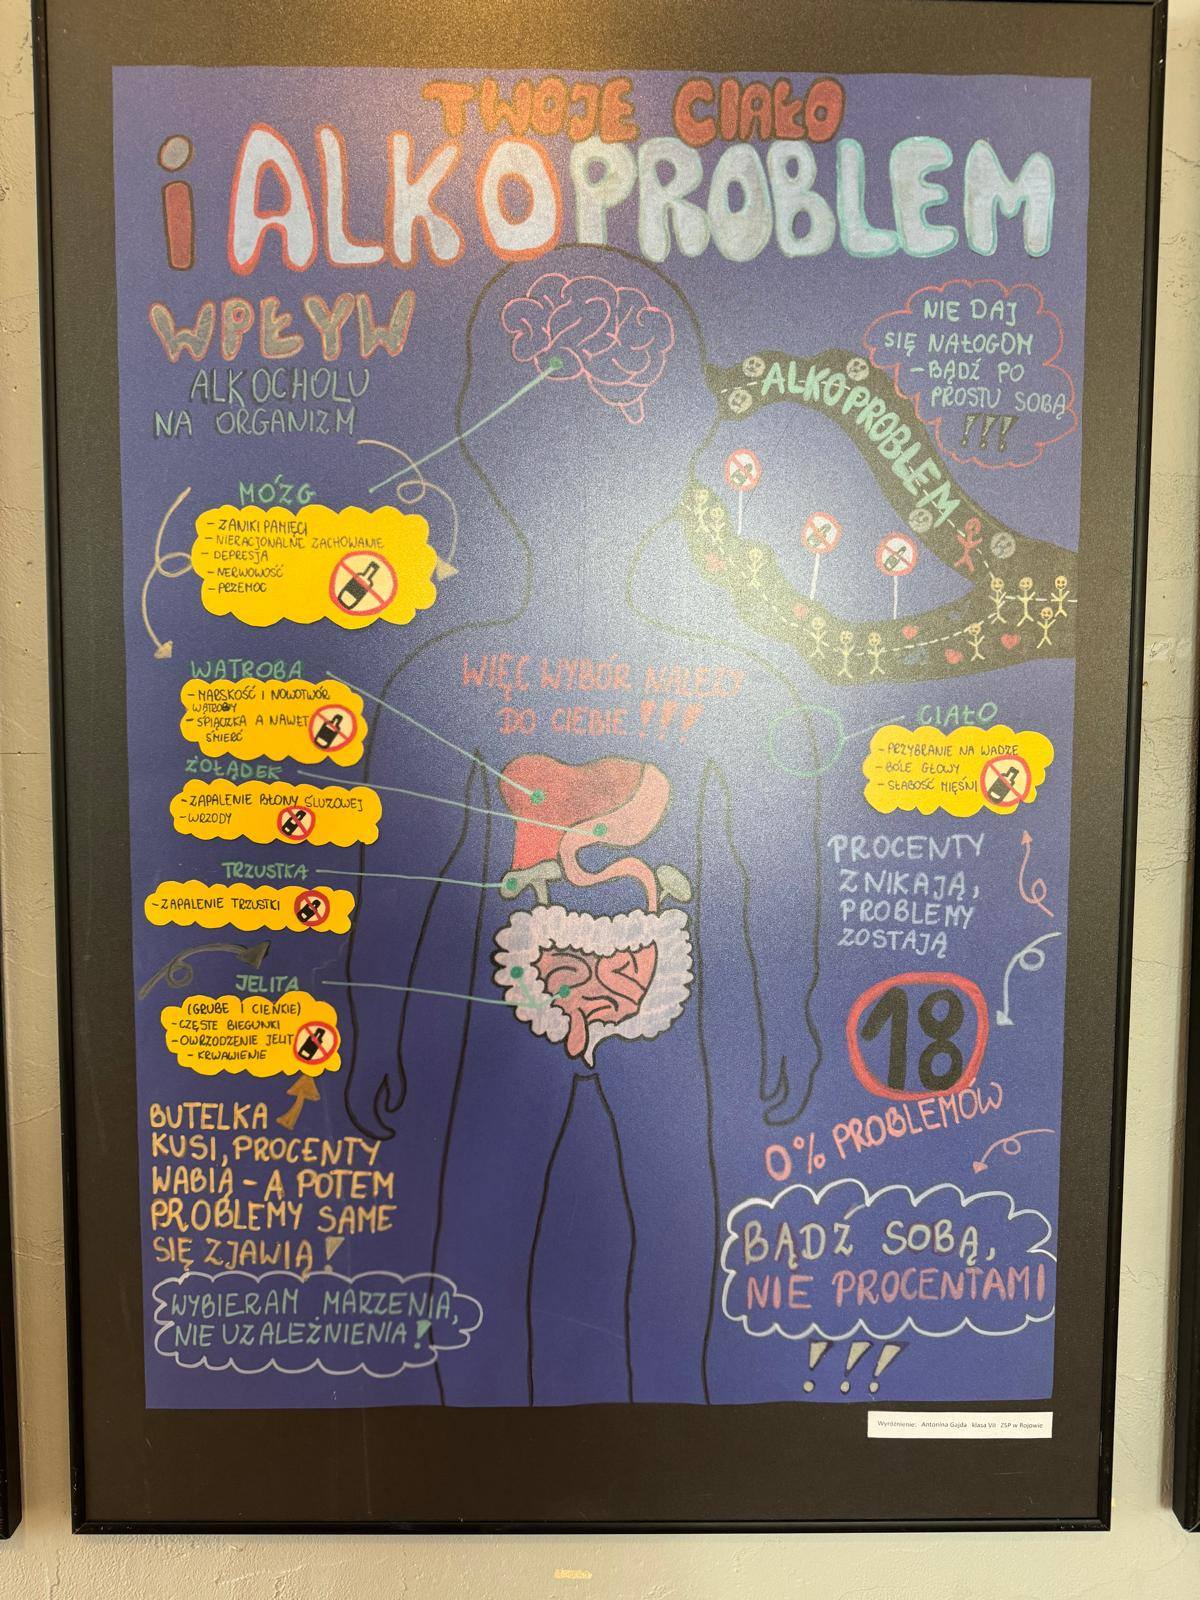 TWOJE CIAŁO
i ALKOPROBLEM
WPŁYW
ALKOCHOLU
NA ORGANIZM
MÓZG
- ZANIKI PAMIĘCI
- NIERACJONALNE ZACHOWANIE
- DEPRESJA
- NERWOWOŚĆ
- PRZEMOC
WĄTROBA
- MARSKOŚĆ I NOWOTWÓR
WĄTROBY
- ŚPIĄCZKA A NAWET
ŚMIERĆ
ŻOŁĄDEK
- ZAPALENIE BŁONY ŚLUZOWEJ
- WRZODY
TRZUSTKA
- ZAPALENIE TRZUSTKI
JELITA
(GRUBE I CIEŃKIE)
- CZĘSTE BIEGUNKI
- OWRZODZENIE JELIT
- KRWAWIENIE
BUTELKA
KUSI, PROCENTY
WABIĄ - A POTEM
PROBLEMY SAME
SIĘ ZJAWIĄ!
WYBIERAM MARZENIA,
NIE UZALEŻNIENIA!
WIĘC WYBÓR NALEŻY
DO CIEBIE!!!
NIE DAJ
SIĘ NAŁOGOM
- BĄDŹ PO
PROSTU SOBĄ
!!!
ALKOPROBLEM
CIAŁO
- PRZYBRANIE NA WADZE
- BÓLE GŁOWY
- SŁABOŚĆ MIĘŚNI
PROCENTY
ZNIKAJĄ,
PROBLEMY
ZOSTAJĄ
18
0% PROBLEMÓW
BĄDŹ SOBĄ,
NIE PROCENTAMI
!!!
Wyróżnienie: Antonina Gajda klasa VII ZSP w Rojowie